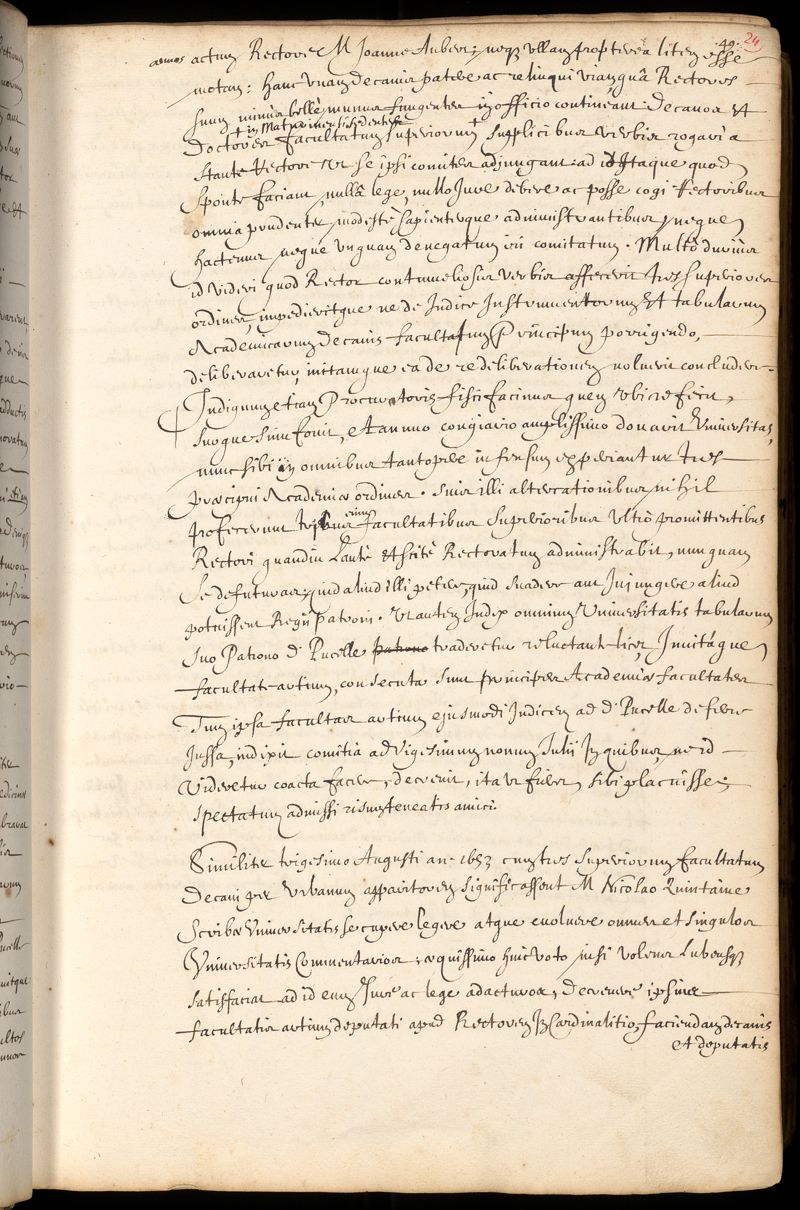 .49. 24
annos actum Rectore M Joanne Aubery; neqz ullam propterea litem esse
motam: hanc unam decanis patere ac relinqui viam quâ Rectores
suum minùs bellè munus fungentes in officio contineant Decanos et
+ in Mathurinensi sede
Doctores facultatum superiorum + supplicibus verbis rogari a
stante Rectore ut se ipsi comites adjungant: ad id Itaque quod
sponte faciant, nullâ lege, nullo Jure debere ac posse cogi Rectoribus
omnia prudenter, modestè sapienterque administrantibus, neque
hactenus neque unquam denegatum iri comitatum. Multò durius
id videri quod Rector contumeliosis verbis affecerit tres superiores
ordines, impedieritque ne de Indice Instrumentorum et tabularum
Academicarum decanis facultatum Principum porrigendo,
deliberaretur, initamque ea de re deliberationem noluerit concludere.
Indignum etiam Procuratoris fisci facinus quem ubi refecit,
suoque sinu fovit, et annuo congiario amplissimo donavit Universitas,
nunc sibi in omnibus tantopere infensum experiantur tres
præcipui Academiæ ordines. Sinistri illi altercationibus nihil
profecerunt tribus enim facultatibus superioribus ultrò promittentibus
Rectori quandiu lautè et scitè Rectoratum administrabit, nunquam
se defuturas; quid aliud illi petere, quid suadere aut Injungere aliud
potuissent Regii Patroni. Ut autem Index omnium Universitatis tabularum
suo Patrono D. Pucelle patrono traderetur reluctante licet, Invitáque
facultate artium, consecutæ sunt principes Academiæ facultates
Tum ipsa facultas artium ejusmodi Indicem ad D. Pucelle deferre
Jussa, indixit comitia ad vigesimum nonum Julii In quibus, ne id
videretur coacta facere, decrevit, ita ut fieret, sibi placuisse;
spectatum admissi risum teneatis amici.
Similiter trigesimo Augusti an. 1653 cum tres superiorum facultatum
Decani per Urbanum apparitorem significassent M Nicolao Quintaine
scribæ Universitatis se cupere legere atque evolvere omnes et singulos
Universitatis Commentarios; æquissimo huic voto nisi volens lubensqz
satisfaciat ad id eum Jure ac lege adacturos, Decrevere ipsius
facultatis artium deputati apud Rectorem In Cardinalitio, faciendam decanis
et deputatis